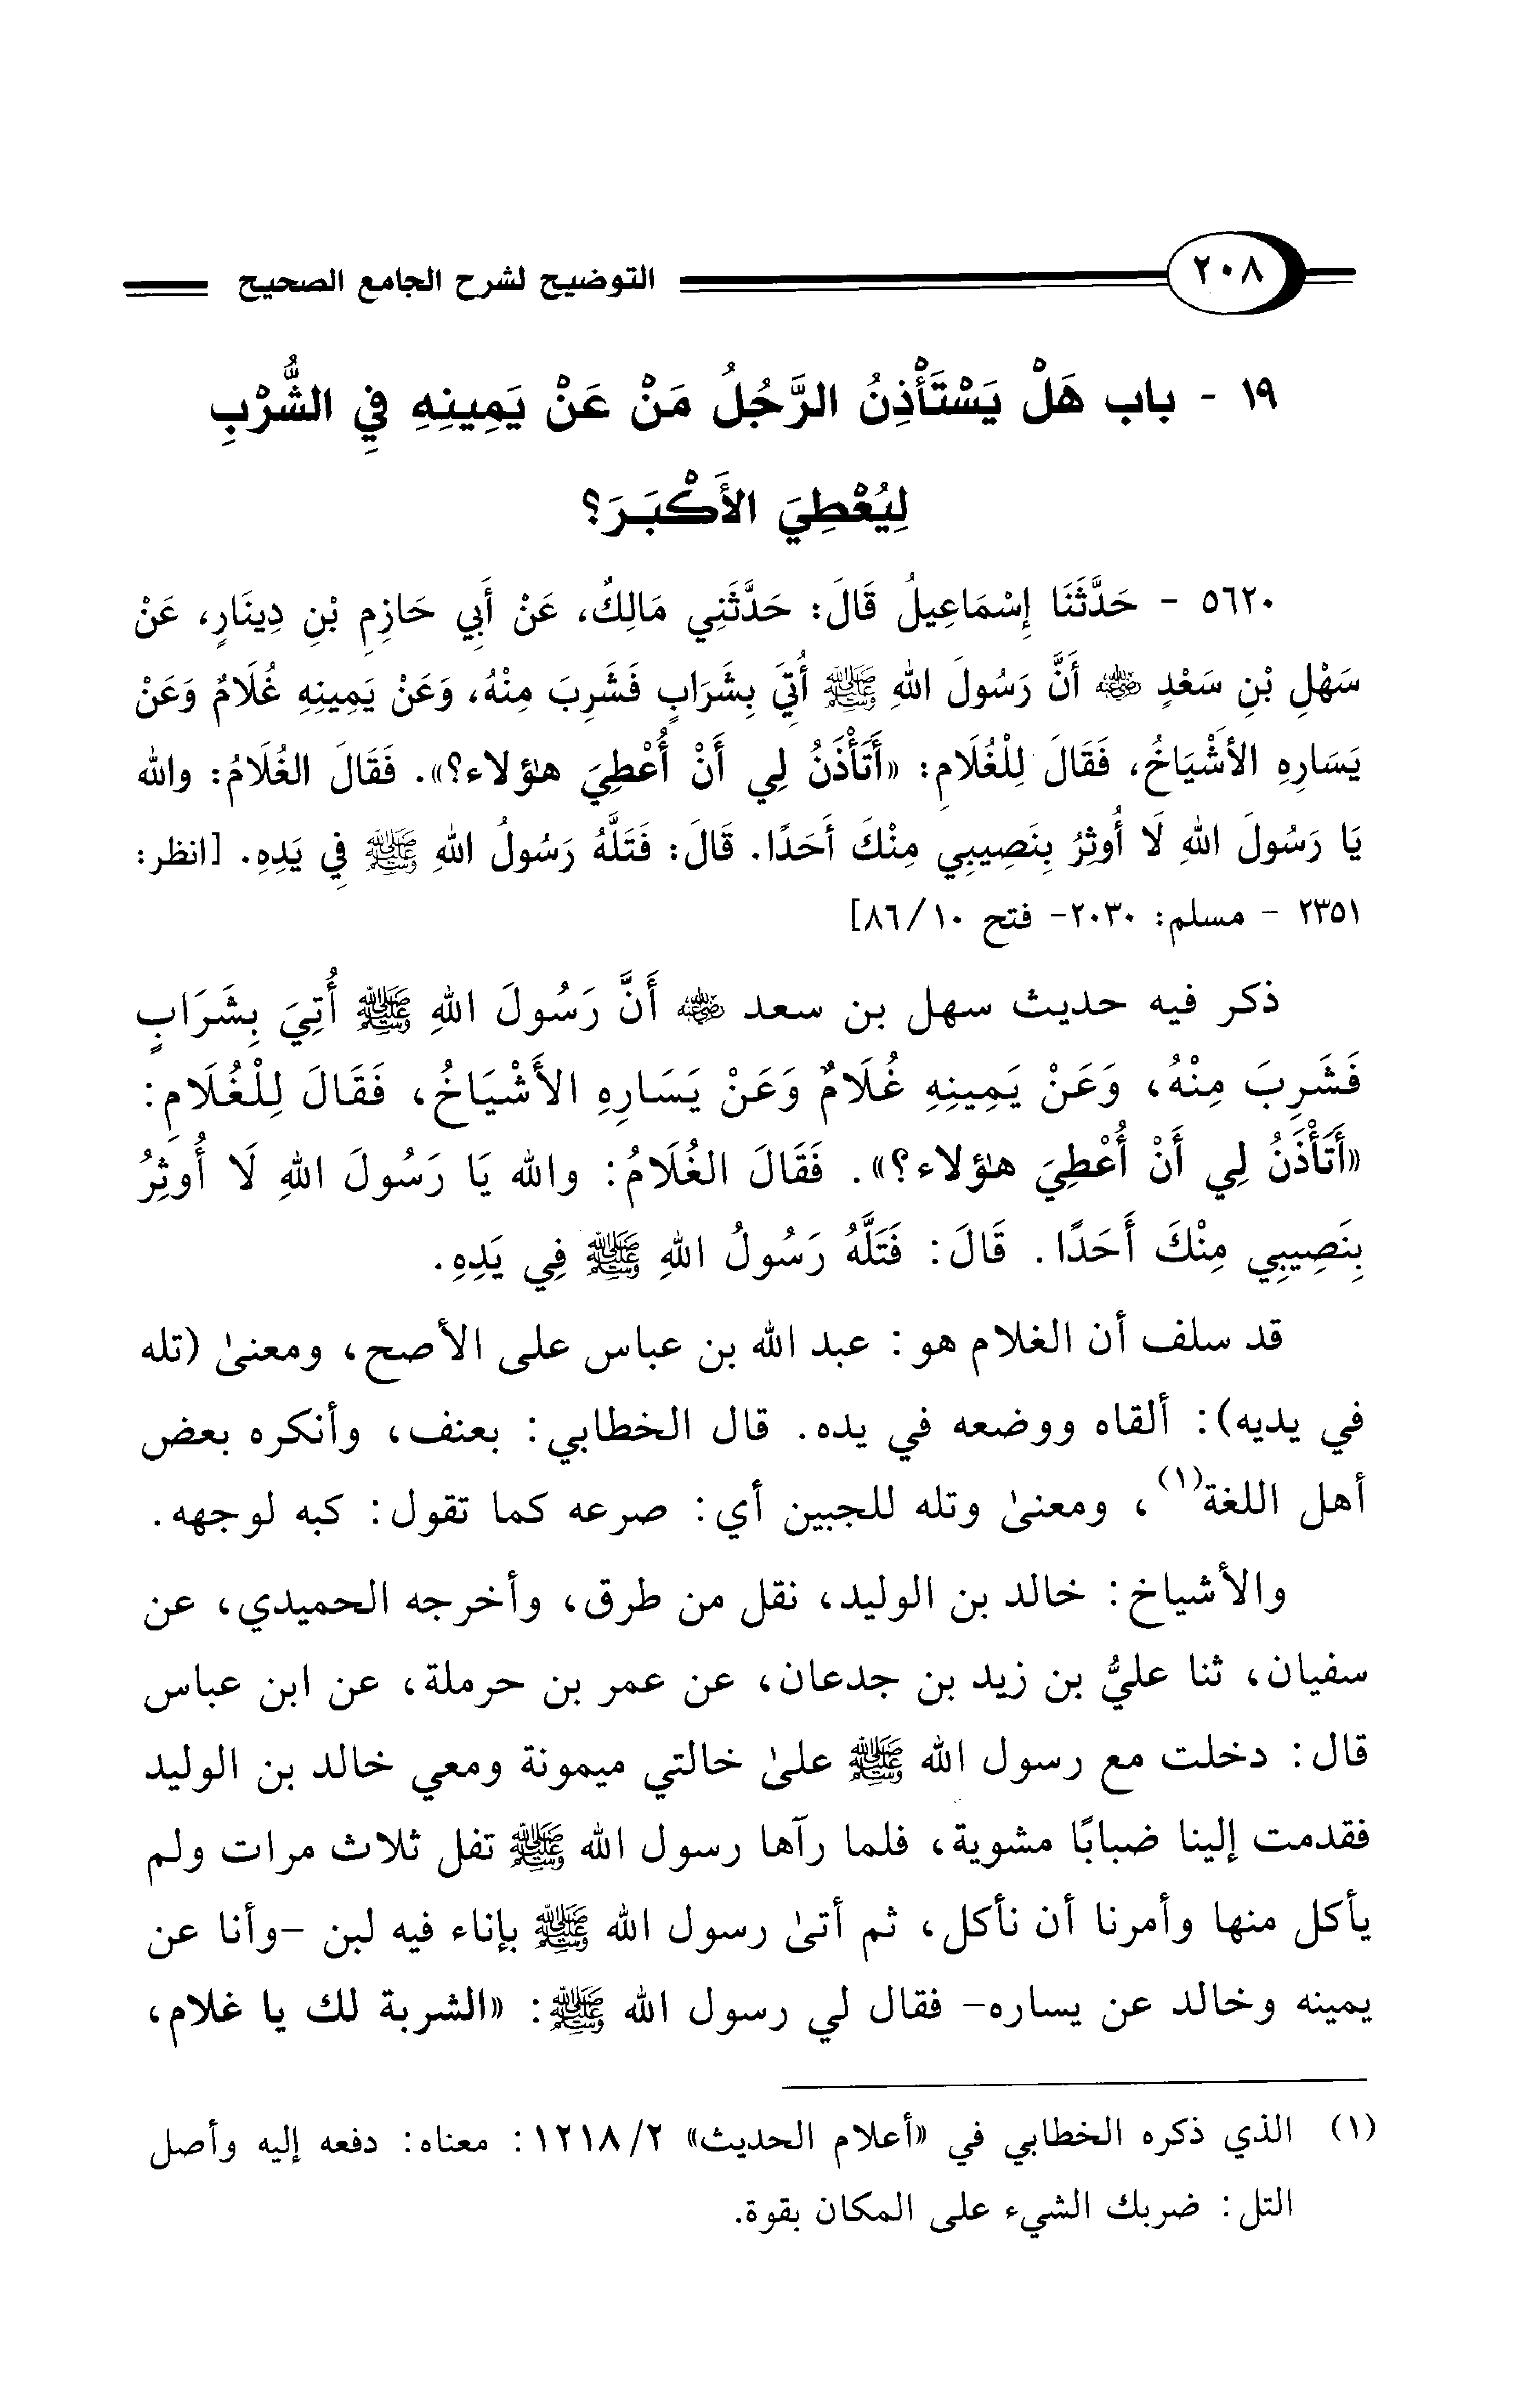 ٢٠٨ التوضيح لشرح الجامع الصحيح
١٩ - باب هَلْ يَسْتَأْذِنُ الرَّجُلُ مَنْ عَنْ يَمِينِهِ فِي الشُّرْبِ
لِيُعْطِيَ الأَكْبَرَ؟
٥٦٢٠ - حَدَّثَنَا إِسْمَاعِيلُ قَالَ: حَدَّثَنِي مَالِكٌ، عَنْ أَبِي حَازِمِ بْنِ دِينَارٍ، عَنْ
سَهْلِ بْنِ سَعْدٍ رضي الله عنه أَنَّ رَسُولَ اللهِ ﷺ أُتِيَ بِشَرَابٍ فَشَرِبَ مِنْهُ، وَعَنْ يَمِينِهِ غُلَامٌ وَعَنْ
يَسَارِهِ الأَشْيَاخُ، فَقَالَ لِلْغُلَامِ: «أَتَأْذَنُ لِي أَنْ أُعْطِيَ هؤلاء؟». فَقَالَ الغُلَامُ: والله
يَا رَسُولَ اللهِ لَا أُوثِرُ بِنَصِيبِي مِنْكَ أَحَدًا. قَالَ: فَتَلَّهُ رَسُولُ اللهِ ﷺ فِي يَدِهِ. [انظر:
٢٣٥١ - مسلم: ٢٠٣٠- فتح ٨٦/١٠]
ذكر فيه حديث سهل بن سعد رضي الله عنه أَنَّ رَسُولَ اللهِ ﷺ أُتِيَ بِشَرَابٍ
فَشَرِبَ مِنْهُ، وَعَنْ يَمِينِهِ غُلَامٌ وَعَنْ يَسَارِهِ الأَشْيَاخُ، فَقَالَ لِلْغُلَامِ:
«أَتَأْذَنُ لِي أَنْ أُعْطِيَ هؤلاء؟». فَقَالَ الغُلَامُ: والله يَا رَسُولَ اللهِ لَا أُوثِرُ
بِنَصِيبِي مِنْكَ أَحَدًا. قَالَ: فَتَلَّهُ رَسُولُ اللهِ ﷺ فِي يَدِهِ.
قد سلف أن الغلام هو: عبد الله بن عباس على الأصح، ومعنىٰ (تله
في يديه): ألقاه ووضعه في يده. قال الخطابي: بعنف، وأنكره بعض
أهل اللغة(١)، ومعنىٰ وتله للجبين أي: صرعه كما تقول: كبه لوجهه.
والأشياخ: خالد بن الوليد، نقل من طرق، وأخرجه الحميدي، عن
سفيان، ثنا عليُّ بن زيد بن جدعان، عن عمر بن حرملة، عن ابن عباس
قال: دخلت مع رسول الله ﷺ علىٰ خالتي ميمونة ومعي خالد بن الوليد
فقدمت إلينا ضبابًا مشوية، فلما رآها رسول الله ﷺ تفل ثلاث مرات ولم
يأكل منها وأمرنا أن نأكل، ثم أتىٰ رسول الله ﷺ بإناء فيه لبن -وأنا عن
يمينه وخالد عن يساره- فقال لي رسول الله ﷺ: «الشربة لك يا غلام،
(١) الذي ذكره الخطابي في «أعلام الحديث» ١٢١٨/٢: معناه: دفعه إليه وأصل
التل: ضربك الشيء على المكان بقوة.